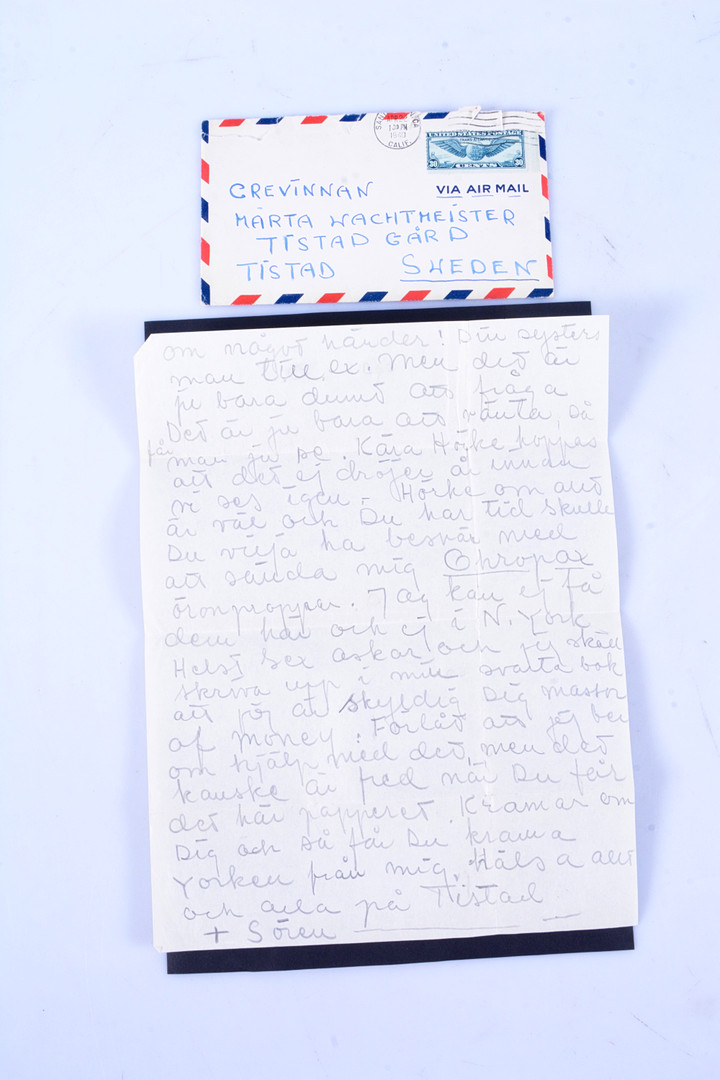 SANTA MONICA
1 30 PM
1940
CALIF.
UNITED STATES POSTAGE
TRANS-ATLANTIC
30 CENTS 30
VIA AIR MAIL
GREVINNAN
MÄRTA WACHTMEISTER
TISTAD GÅRD
TISTAD SWEDEN
om något händer! Din systers
man till ex. Men det är
ju bara dumt att fråga
Det är ju bara att vänta, så
får
man ju se. Kära Hörke hoppas
att det ej dröjer år innan
vi ses igen. Hörke om allt
är väl och Du har tid skulle
Du vilja ha besvär med
att sända mig Ohropax
öronproppar. Jag kan ej få
dem här och ej i N. York
Helst sex askar och jag skall
skriva upp i min svarta bok
att jag är skyldig Dig massor
af money. Förlåt att jag ber
om hjälp med det, men det
kanske är fred när Du får
det här papperet. Kramar om
Dig och så får Du krama
Yorken från mig. Hälsa allt
och alla på Tistad
+ Sören